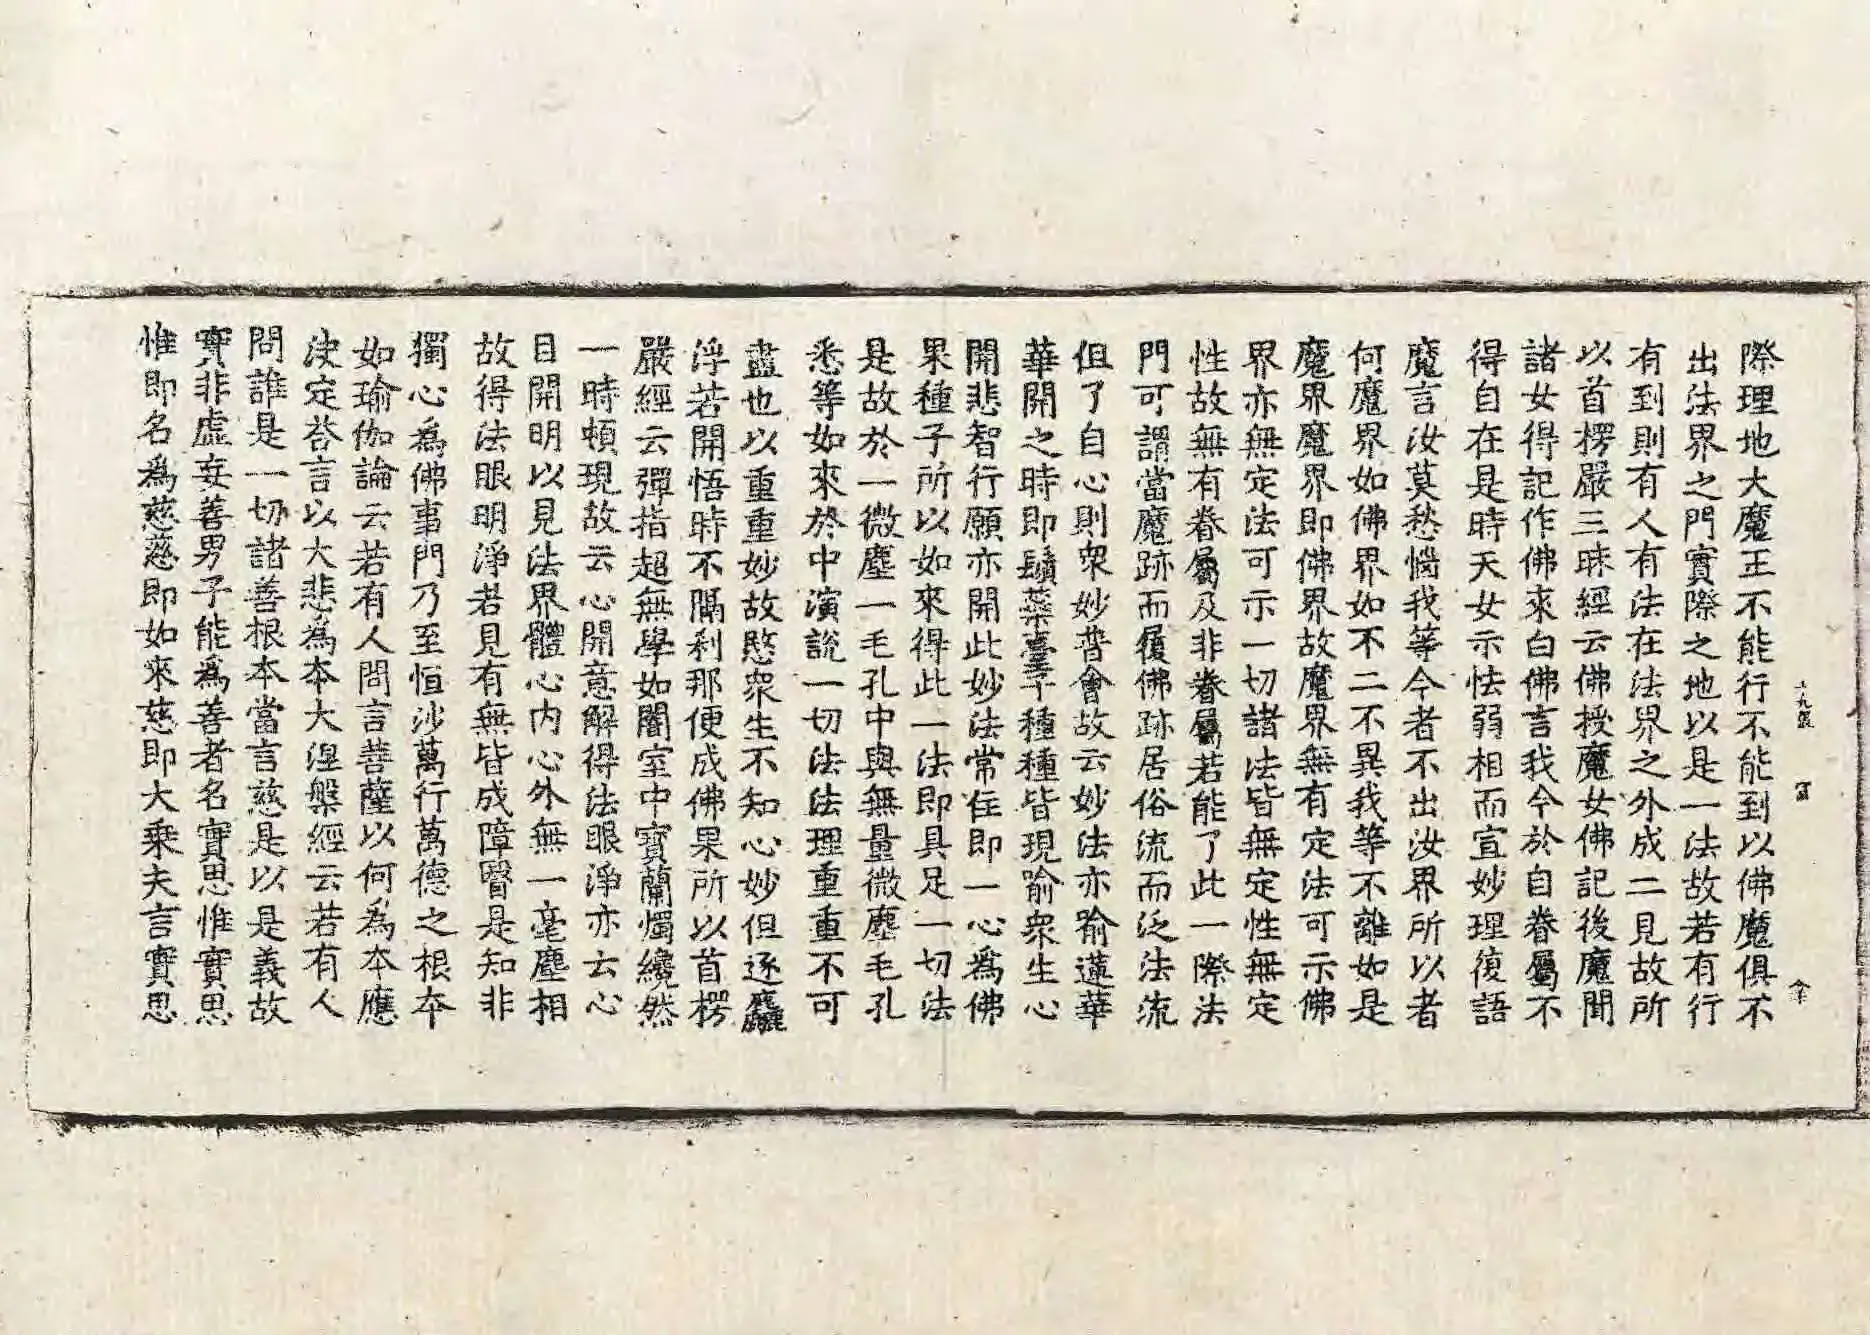 際理地大魔王不能行不能到以佛魔俱不
出法界之門實際之地以是一法故若有行
有到則有人有法在法界之外成二見故所
以首楞嚴三昧經云佛授魔女佛記後魔聞
諸女得記作佛來白佛言我今於自眷屬不
得自在是時天女示怯弱相而宣妙理復語
魔言汝莫愁惱我等今者不出汝界所以者
何魔界如佛界如不二不異我等不離如是
魔界魔界即佛界故魔界無有定法可示佛
界亦無定法可示一切諸法皆無定性無定
性故無有眷屬及非眷屬若能了此一際法
門可謂當魔跡而履佛跡居俗流而泛法流
但了自心則眾妙普會故云妙法亦喻蓮華
華開之時即鬚蘂臺子種種皆現喻眾生心
開悲智行願亦開此妙法常住即一心為佛
果種子所以如來得此一法即具足一切法
是故於一微塵一毛孔中與無量微塵毛孔
悉等如來於中演說一切法法理重重不可
盡也以重重妙故愍眾生不知心妙但逐麤
浮若開悟時不隔剎那便成佛果所以首楞
嚴經云彈指超無學如闇室中寶蘭燭纔然
一時頓現故云心開意解得法眼淨亦云心
目開明以見法界體心內心外無一毫塵相
故得法眼明淨若見有無皆成障瞖是知非
獨心為佛事門乃至恒沙萬行萬德之根本
如瑜伽論云若有人問言菩薩以何為本應
決定荅言以大悲為本大涅槃經云若有人
問誰是一切諸善根本當言慈是以是義故
實非虛妄善男子能為善者名實思惟實思
惟即名為慈慈即如來慈即大乘夫言實思